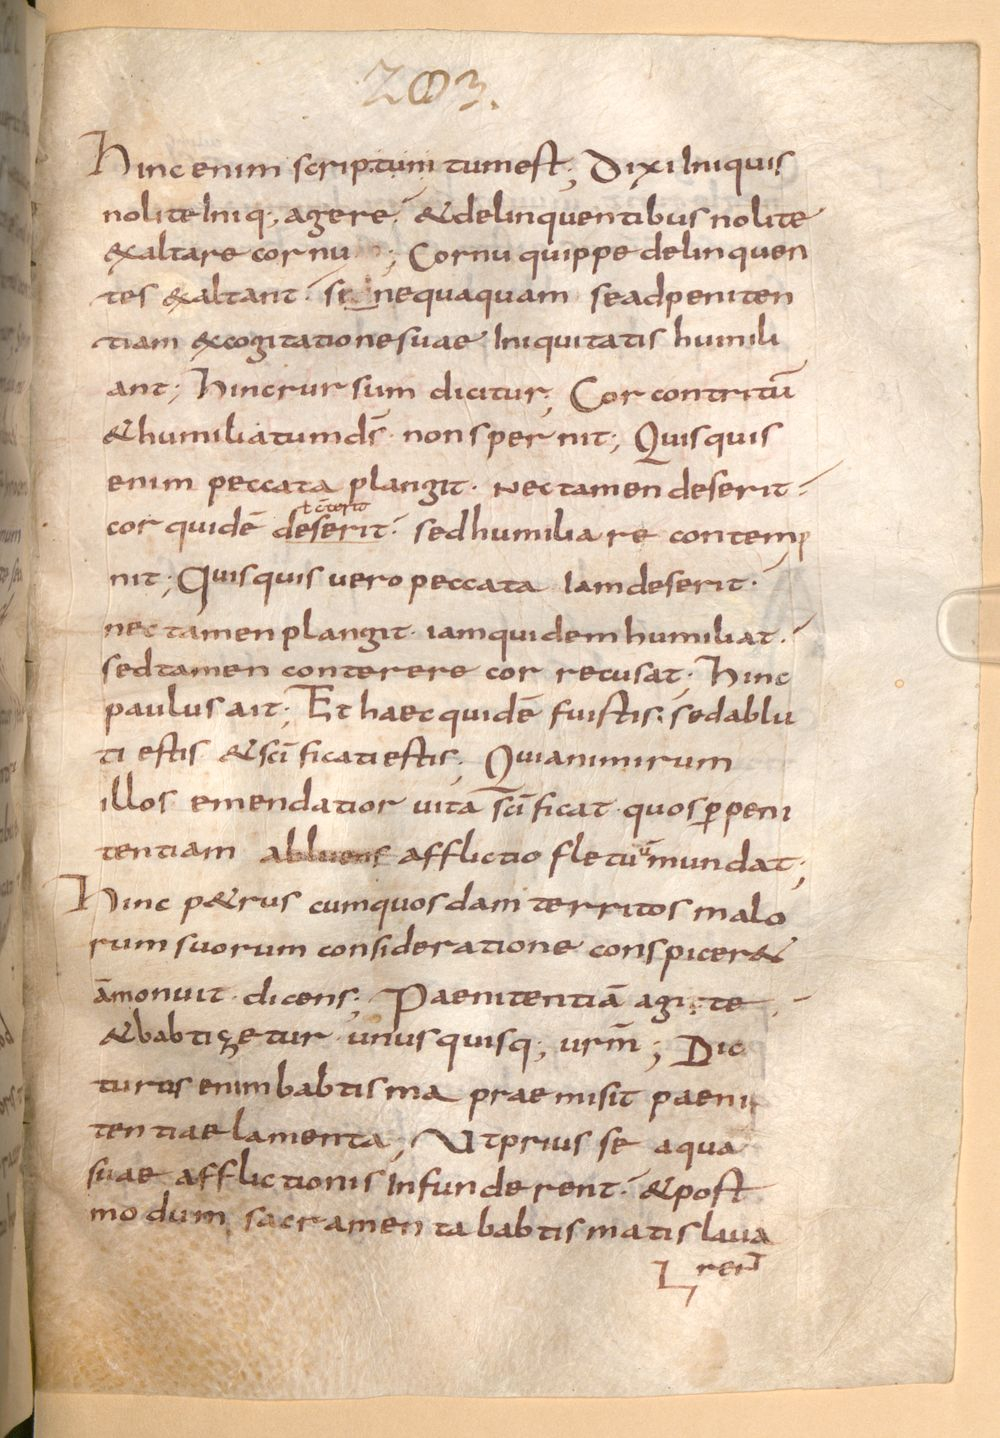 203.
Hinc enim scriptum tum est; Dixi Iniquis
nolite Iniq; agere. & delinquentibus nolite
exaltare cornu; Cornu quippe delinquen
tes exaltant. si nequaquam se ad peniten
tiam ex cogitatione suae Iniquitatis humili
ant; Hinc rursum dicitur; Cor contritū
& humiliatum d̄s non spernit; Quisquis
enim peccata plangit. nec tamen deserit.
t c̄terit
cor quidē deserit. sed humiliare contemp
nit; Quisquis vero peccata Iam deserit.
nec tamen plangit. iam quidem humiliat.
sed tamen conterere cor recusat; Hinc
paulus ait; Et haec quidē fuistis. sed ablu
ti estis & sc̄ificati estis; Quia nimirum
illos emendatior vita sc̄ificat. quos ꝑ peni
tentiam abluens afflictio fletuū mundat;
Hinc p&rus cum quosdam territos malo
rum suorum consideratione conspicer&
āmonuit. dicens; Paenitentiā agite.
& babtizetur unusquisq; urm̄; Dic
turus enim babtisma praemisit paeni
tentiae lamenta; Ut prius se aqua
suae afflictionis Infunderent. & post
modum sacramenta babtismatis lava
rent